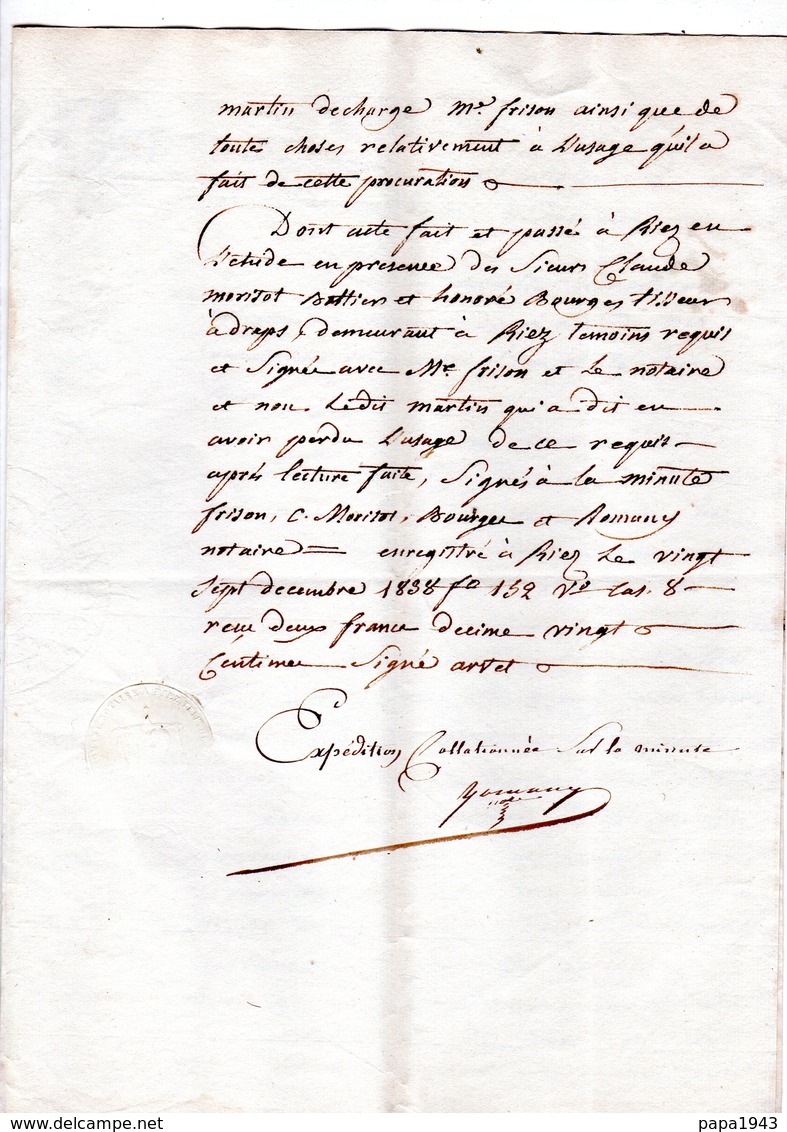 martin decharge Me. frison ainsi que de
toute choses relativement à L'usage qu'il a
fait de cette procuration
Dont acte fait et passé à Riez en
L'etude en presence des Sieurs Claude
Moritot Bottier et honoré Bourges tisseur
à draps, demeurant à Riez temoins requis
et Signée avec Me. frison et Le notaire
et non Ledit martin qui a dit en
avoir perdu L'usage de ce requis
après lecture faite, Signés à la minute
frison, C. Moritot, Bourges et Romany
notaire = enregistré à Riez Le vingt
Sept decembre 1838 fo 152 Vo Cas. 8
reçu deux francs decime vingt
Centimes Signé artet
Expédition Collationnée Sur la minute
Romany
note
papa1943